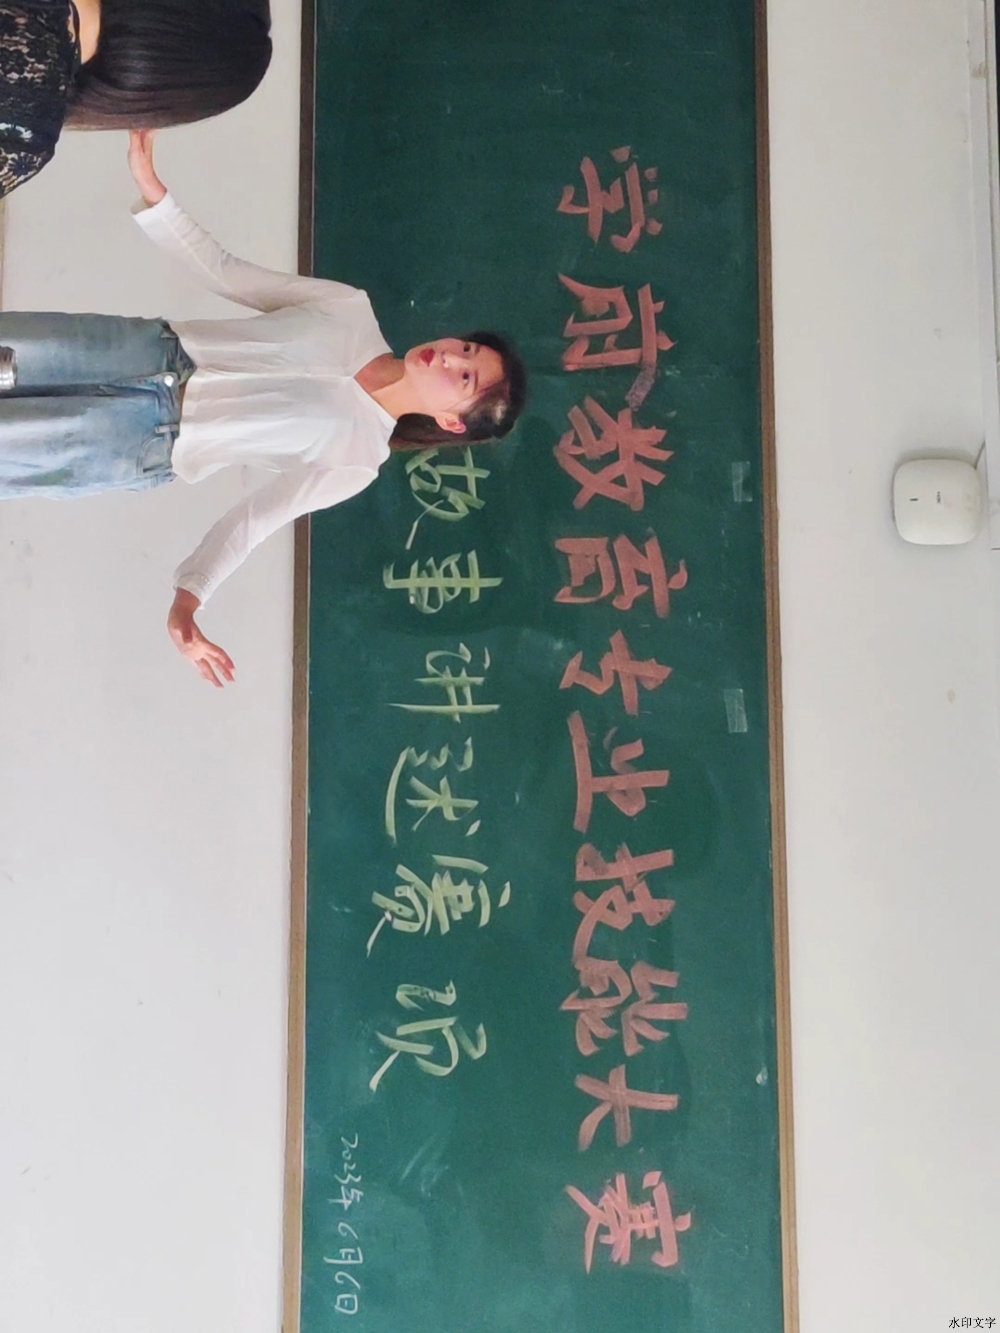 学前教育专业技能大赛
故事讲述赛项
2023年6月6日
水印文字